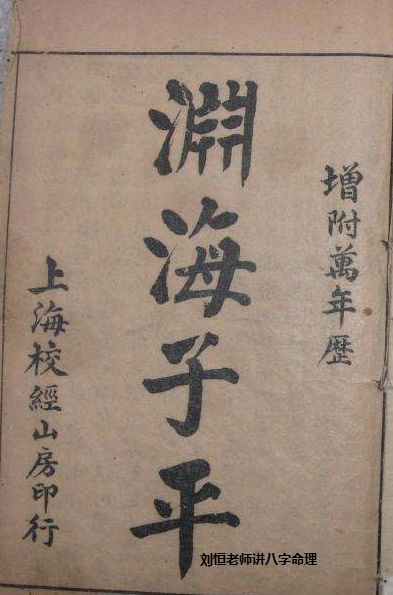 增附萬年歷
淵海子平
上海校經山房印行
刘恒老师讲八字命理